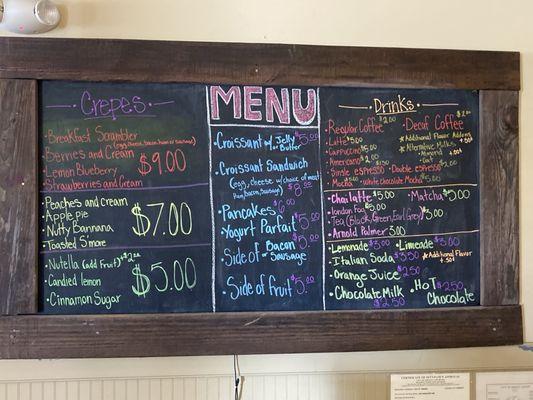 Crepes
• Breakfast Scrambler
(egg, cheese, bacon, ham or sausage)
• Berries and Cream
• Lemon Blueberry
• Strawberries and Cream
$9.00
• Peaches and cream
• Apple pie
• Nutty Bannana
• Toasted S'more
$7.00
• Nutella (add fruit) $2.00
• Candied lemon
• Cinnamon Sugar
$5.00
MENU
• Croissant w/ Jelly + Butter $5.00
• Croissant Sandwich
(egg, cheese w/ choice of meat
ham, bacon, sausage) $8.00
• Pancakes $6.00
• Yogurt Parfait $5.00
• Side of Bacon or Sausage $5.00
• Side of fruit $5.00
Drinks
• Regular Coffee $2.00
• Latte $5.00
• Cappuccino $5.00
• Americano $2.00
• Single espresso $1.50
• Double espresso
• Mocha
• White chocolate Mocha $5.00
• Decaf Coffee $2.00
* Additional Flavor Add ons .50¢
* Alternative Milks
Almond
Oat
• Chai latte $5.00
• Matcha $5.00
• london Fog $5.00
• Tea (Black, Green, Earl Grey) $3.00
• Arnold Palmer $3.00
• Lemonade $3.00
• Limeade $3.00
• Italian Soda $3.50
* Additional Flavor + .50¢
• Orange Juice $2.50
• Chocolate Milk $2.50
• Hot Chocolate $2.50
CERTIFICATE OF